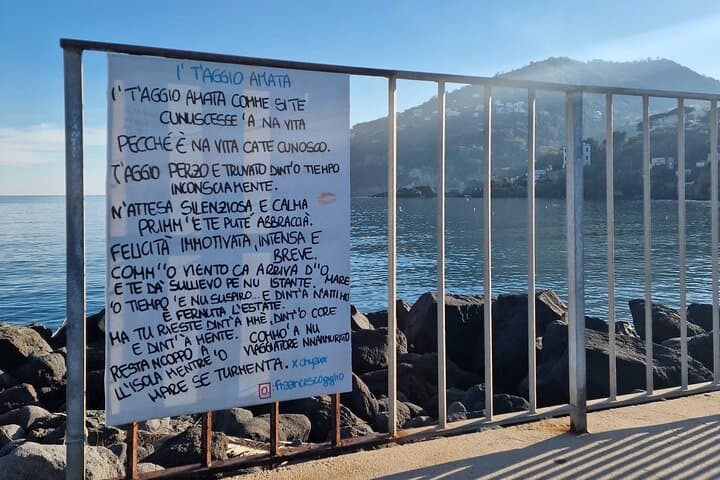 I' T'AGGIO AMATA
I' T'AGGIO AMATA COMME SI TE
CUNUSCESSE 'A NA VITA
PECCHÉ È NA VITA CA TE CUNOSCO.
T'AGGIO PERZO E TRUVATO DINT'O TIEMPO
INCONSCIAMENTE.
N'ATTESA SILENZIOSA E CALMA
PRIMM' 'E TE PUTÉ ABBRACCIÀ.
FELICITÀ IMMOTIVATA, INTENSA E
BREVE.
COMM' 'O VIENTO CA ARRIVA D''O MARE
E TE DÀ SULLIEVO PE NU ISTANTE.
'O TIEMPO 'E NU SUSPIRO... E DINT'A N'ATTIMO
È FERNUTA L'ESTATE
MA TU RIESTE DINT'A MME, DINT'O CORE
E DINT'A MENTE. COMM'A NU
RESTA NCOPP'A VIAGGIATORE NNAMMURATO
LL'ISOLA MENTRE 'O
MARE SE TURMENTA.